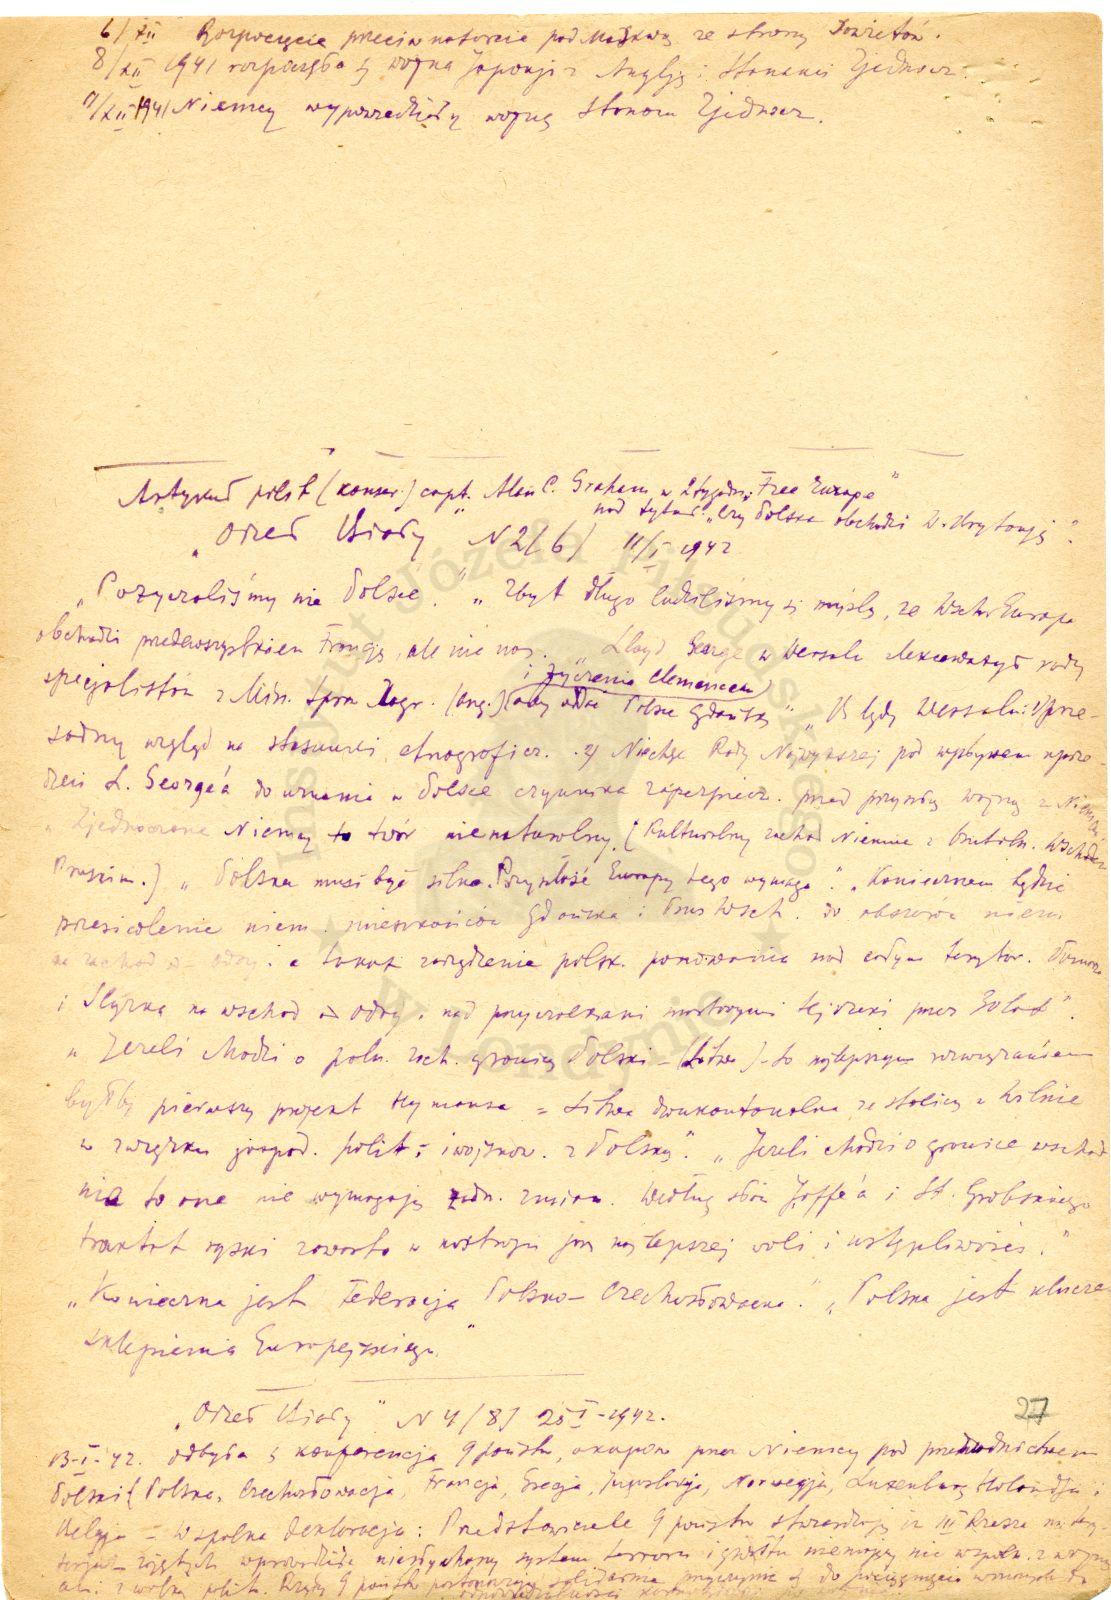 6/XII Rozpoczęcie przeciwnatarcia pod Moskwą ze strony Sowietów.
8/XII 1941 rozpoczęła się wojna Japonji z Anglją i Stanami Zjednocz.
11/XII 1941 Niemcy wypowiedziały wojnę Stanom Zjednocz.
Artykuł polit (konser.) capt. Alan C. Graham w 2tygodn. „Free Europe"
pod tytuł: „Czy Polska obchodzi W. Brytanję".
„Orzeł Biały" N 2/6/ 11/I 1942
„Pożyczaliśmy nie Polsce." „Zbyt długo łudziliśmy się myślą, że Wsch. Europa
obchodzi przedewszystkiem Francję, ale nie nas. Lloyd George w Wersalu zlekceważył rady
i życzenia Clemenceau
specjalistów z Min. Spraw Zagr. (ang.) (aby oddać Polsce Gdańsk)" „Błędy Wersalu: 1) Prze-
sadny wzgląd na stosunki etnograficz. 2) Niechęć Rady Najwyższej pod wpływem uprze-
dzeń L. George'a do uznania w Polsce czynnika zapezpiecz. przed przyszłą wojną z Niemcami
„Zjednoczone Niemcy to twór nienaturalny. (Kulturalny zachod Niemiec z brutaln. Wschodem
Pruskim.) „Polska musi być silna. Przyszłość Europy tego wymaga". „Koniecznem będzie
przesiedlenie niem. mieszkańców Gdańska i Prus Wsch. do obszarów niem.
na zachod od Odry, a także zarządzenie polsk. panowania nad całym terytor. Pomorza
i Śląska na wschod od Odry, nad przyczółkami mostowymi tej rzeki przez Polaków".
„Jeżeli chodzi o półn. wsch. granicę Polski – (Litwa) – to najlepszym rozwiązaniem
byłby pierwszy projekt Hymansa = Litwa dwukantonalna ze stolicą w Wilnie
w związku gospod. polit. i wojskow. z Polską". „Jeżeli chodzi o granice wschod
nie to one nie wymagają żadn. zmian. Według słów Joffe'a i St. Grabskiego
traktat ryski zawarto w nastroju jak najlepszej woli i ustępliwości."
„Konieczna jest Federacja Polsko-Czechosłowacka." „Polska jest klucze
sklepienia Europejskiego."
27
„Orzeł Biały" N 4/8/ 25 I-1942.
13-I-42. odbyła się konferencja 9 państw okupow. przez Niemcy pod przewodnictwem
Polski (Polska, Czechosłowacja, Francja, Grecja, Jugosławja, Norwegja, Luxenburg, Holandja i
Belgja – Wspólna deklaracja: Przedstawiciele 9 państw stwierdzają iż III Rzesza na tery-
torjach zajętych wprowadziła niesłychany system terroru i gwałtu niemający nic wspóln. z wojną
ani z walką polit. Rządy 9 państw postanawiają solidarnie przyczynić się do pociągnięcia winnych do
odpowiedzialności
Instytut Józefa Piłsudskiego
w Londynie